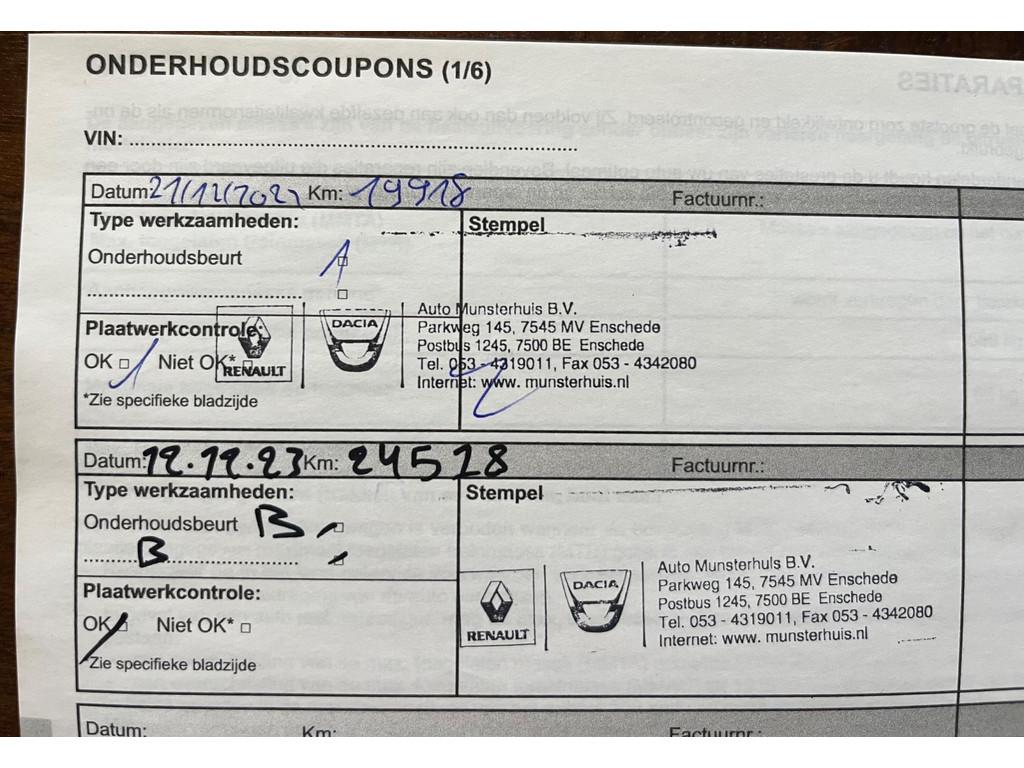 ONDERHOUDSCOUPONS (1/6)
VIN:
Datum: 21/12/2022 Km: 19918 Factuurnr.:
Type werkzaamheden: Stempel
Onderhoudsbeurt
Plaatwerkcontrole:
OK Niet OK*
*Zie specifieke bladzijde
RENAULT
DACIA
Auto Munsterhuis B.V.
Parkweg 145, 7545 MV Enschede
Postbus 1245, 7500 BE Enschede
Tel. 053 - 4319011, Fax 053 - 4342080
Internet: www. munsterhuis.nl
Datum: 12.12.23 Km: 24528 Factuurnr.:
Type werkzaamheden: Stempel
Onderhoudsbeurt B
B
Plaatwerkcontrole:
OK Niet OK*
*Zie specifieke bladzijde
RENAULT
DACIA
Auto Munsterhuis B.V.
Parkweg 145, 7545 MV Enschede
Postbus 1245, 7500 BE Enschede
Tel. 053 - 4319011, Fax 053 - 4342080
Internet: www. munsterhuis.nl
Datum: Km: Factuurnr.: